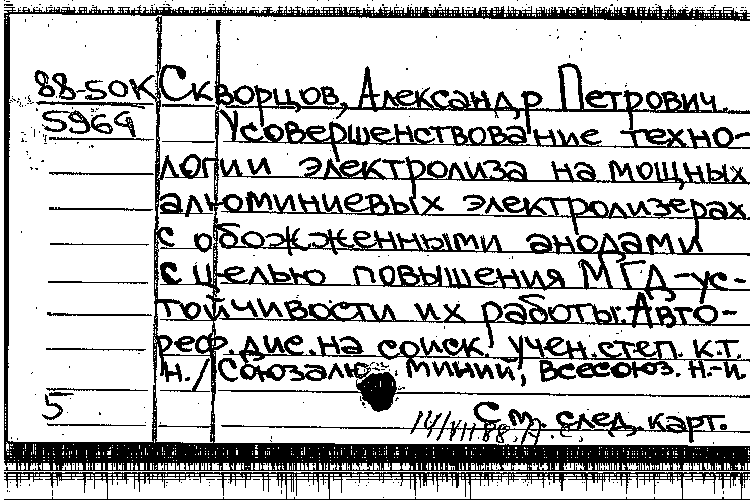 88-50К Скворцов, Александр Петрович.
5969 Усовершенствование техно-
логии электролиза на мощных
алюминиевых электролизерах
с обожженными анодами
с целью повышения МГД-ус-
тойчивости их работы. Авто-
реф. дис. на соиск. учен. степ. к.т.
н. / Союзалюминий, Всесоюз. н.-и.
5 См. след. карт.
14/VII 88.